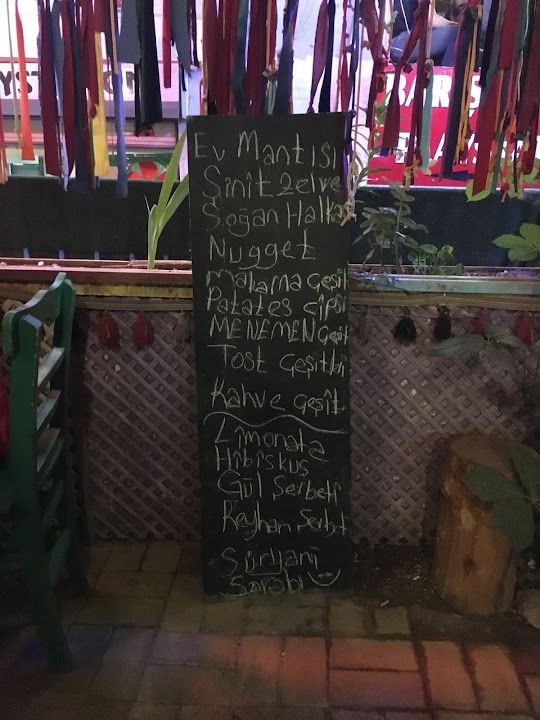 Ev Mantısı
Şinitzelve
Soğan Halka
Nugget
Makarna Çeşit
Patates Cipsi
MENEMEN Çeşit
Tost Çeşitleri
Kahve Çeşit
Limonata
Hibiskus
Gül Şerbeti
Reyhan Şerbet
Süryani
Şarabı